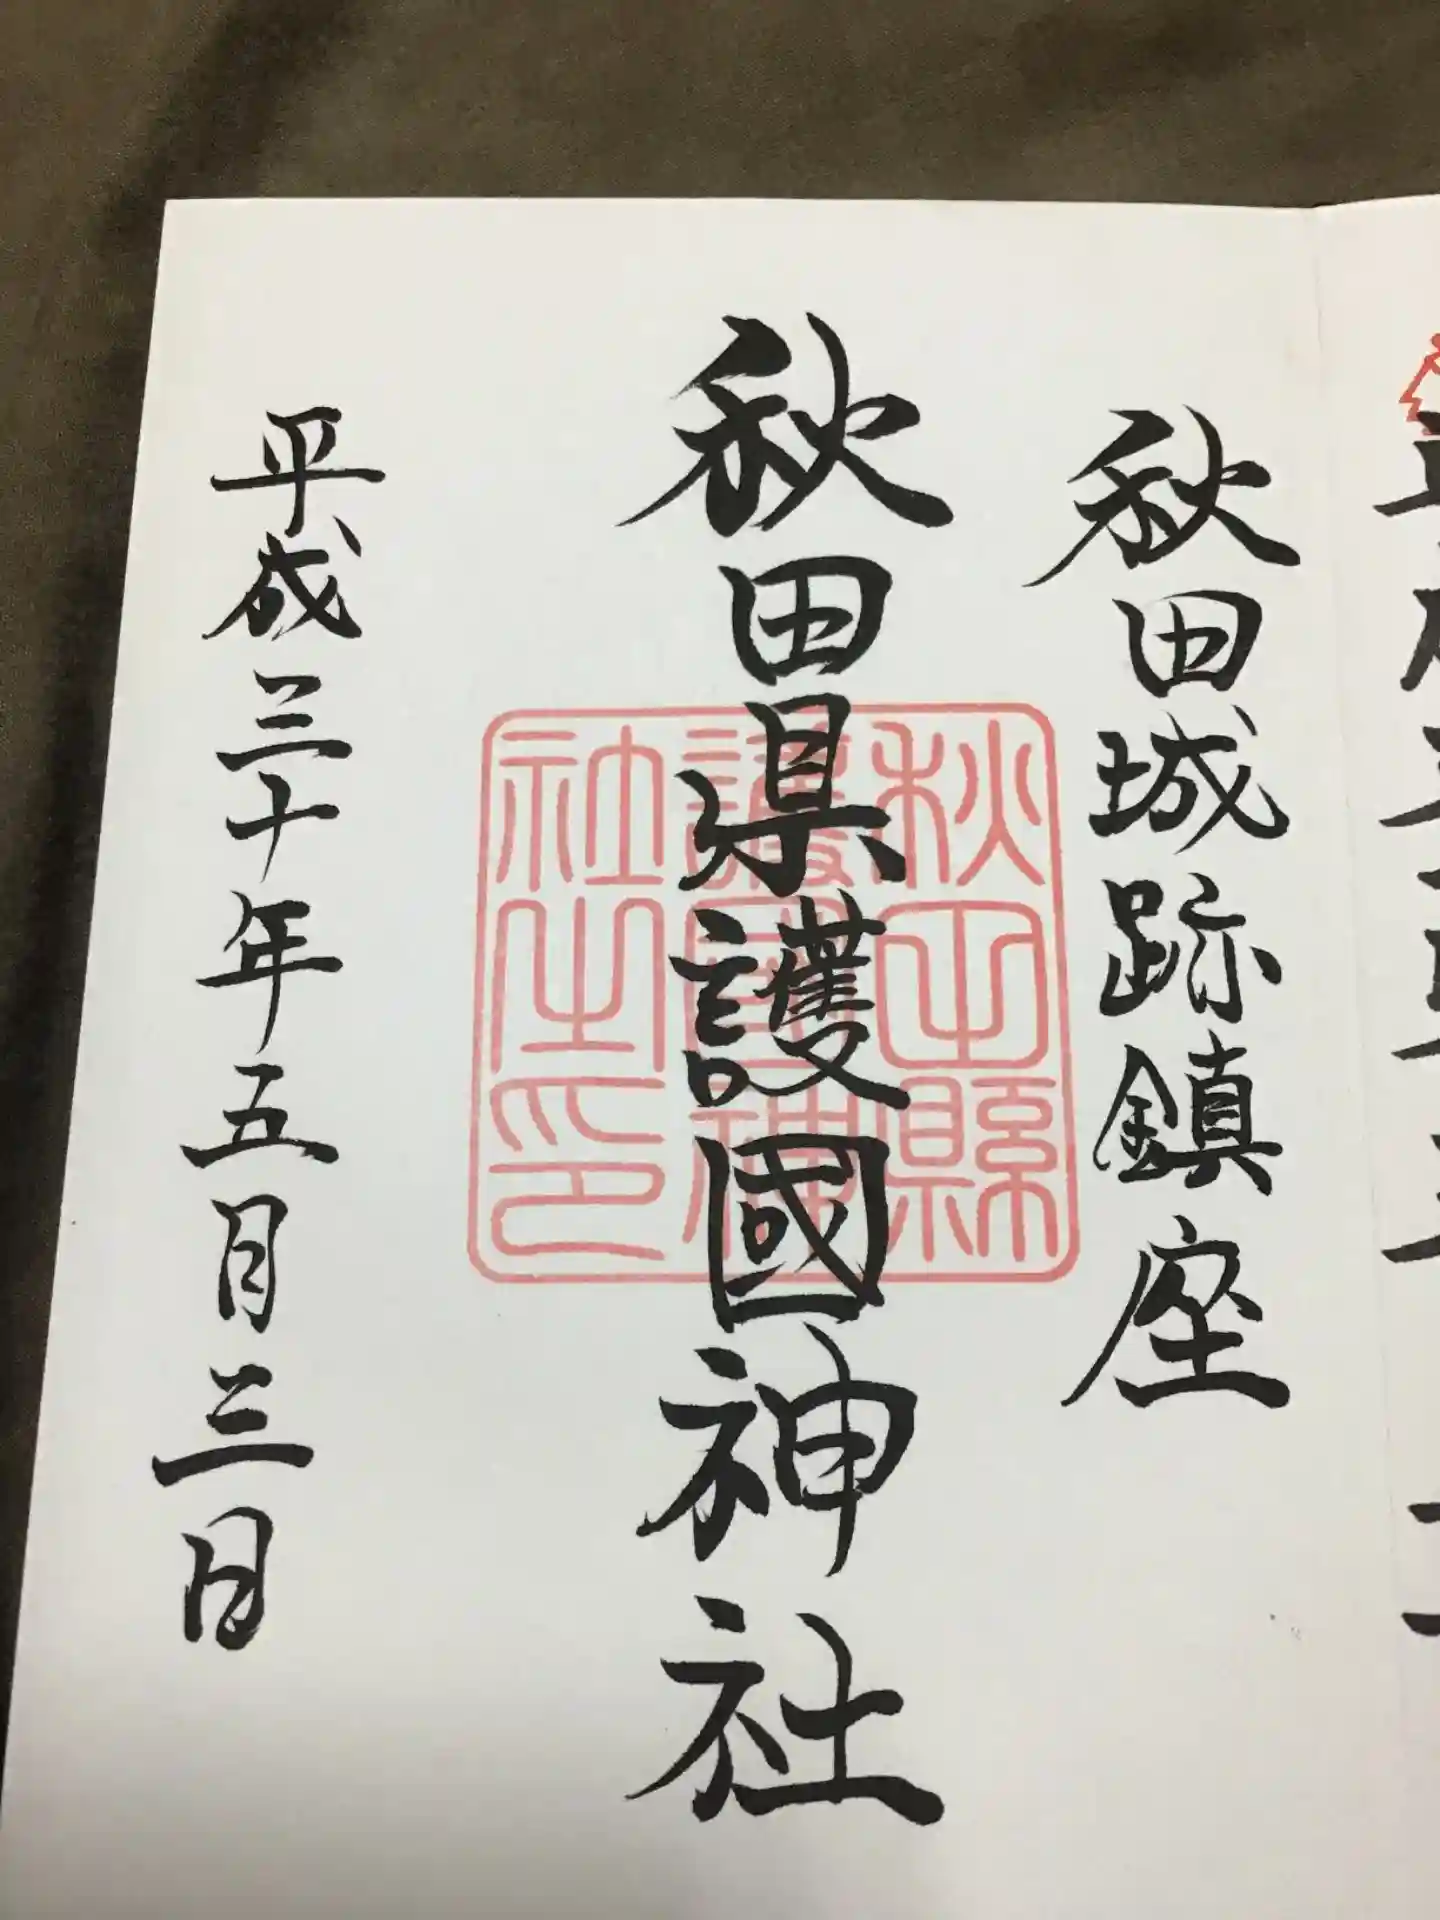 秋田城跡鎮座
秋田県護國神社
秋田縣
護國神
社之印
平成三十年五月三日